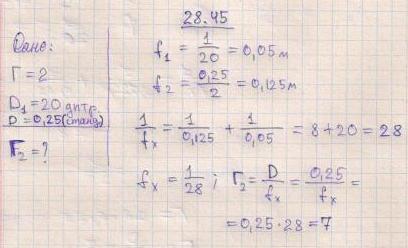 28.45
Дано:
Г = 2
D₁ = 20 дптр.
D = 0,25 (станд)
Г₂ = ?
f₁ = 1/20 = 0,05 м
f₂ = 0,25/2 = 0,125 м
1/fₓ = 1/0,125 + 1/0,05 = 8 + 20 = 28
fₓ = 1/28 ; Г₂ = D/fₓ = 0,25/fₓ =
= 0,25 · 28 = 7